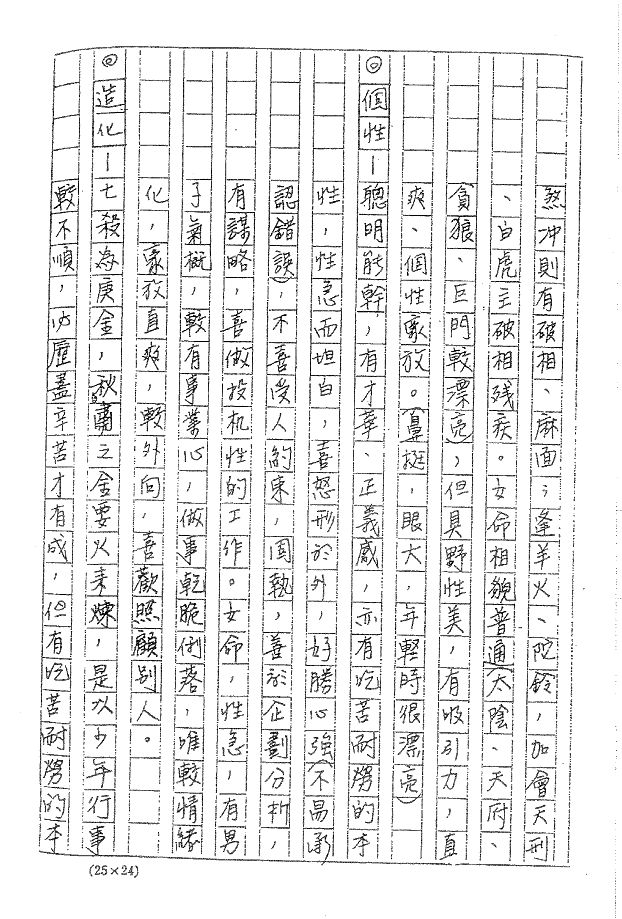 煞冲則有破相、麻面；逢羊火、陀鈴，加會天刑
、白虎主破相残疾。女命相貌普通（太陰、天府、
貪狼、巨門較漂亮），但具野性美，有吸引力，直
爽、個性豪放。（鼻挺，眼大，年輕時很漂亮）
◎個性—聰明能幹，有才華、正義感，亦有吃苦耐勞的本
性，性急而坦白，喜怒形於外，好勝心強（不易承
認錯誤），不喜受人約束，固執，善於企劃分析，
有謀略，喜做投机性的工作。女命，性急，有男
子氣概，較有事業心，做事乾脆俐落，唯較情緒
化，豪放直爽，較外向，喜歡照顧別人。
◎造化—七殺為庚金，秋肅之金要火來煉，是以少年行事
較不順，必歷盡辛苦才有成，但有吃苦耐勞的本
(25×24)